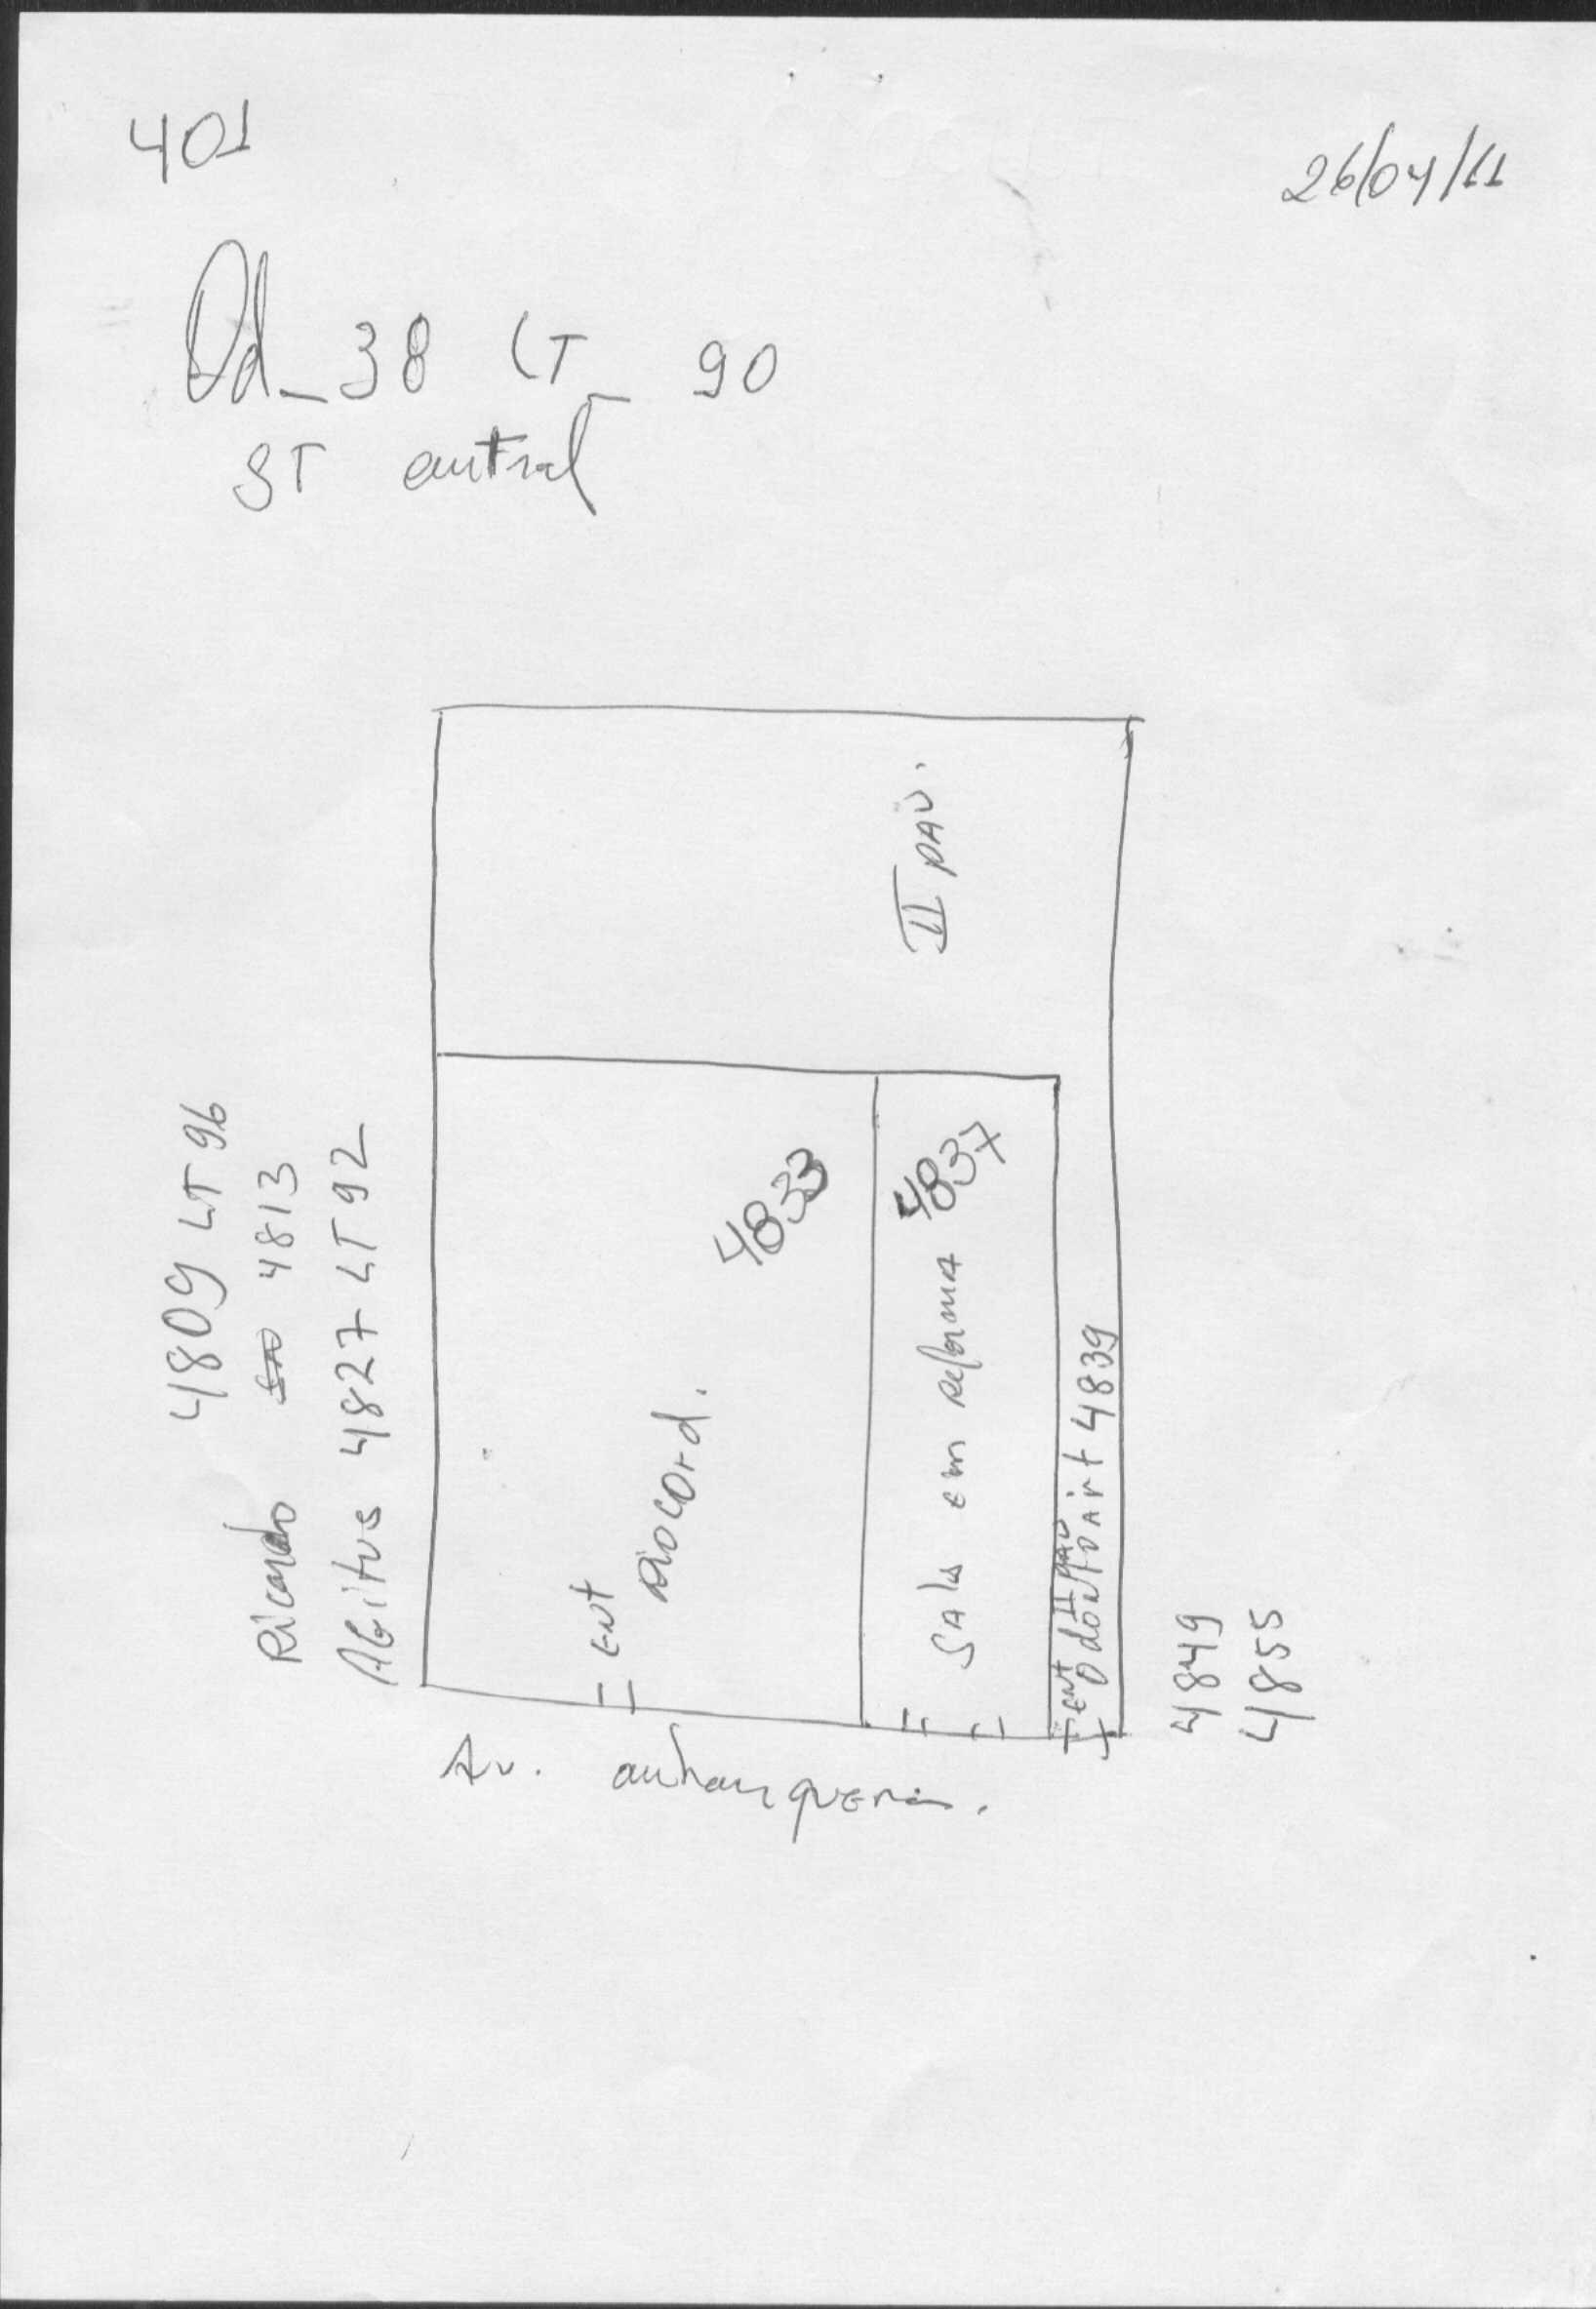 401
26/04/11
Qd_38 LT_ 90
ST central
II PAV.
4809 LT 96
Ricardo 4813
AGitus 4827 LT 92
4833
ENT
RioCord.
4837
SALA em Reforma
ENT II PAV
OdontoArt 4839
4849
4855
Av. anhanguera.